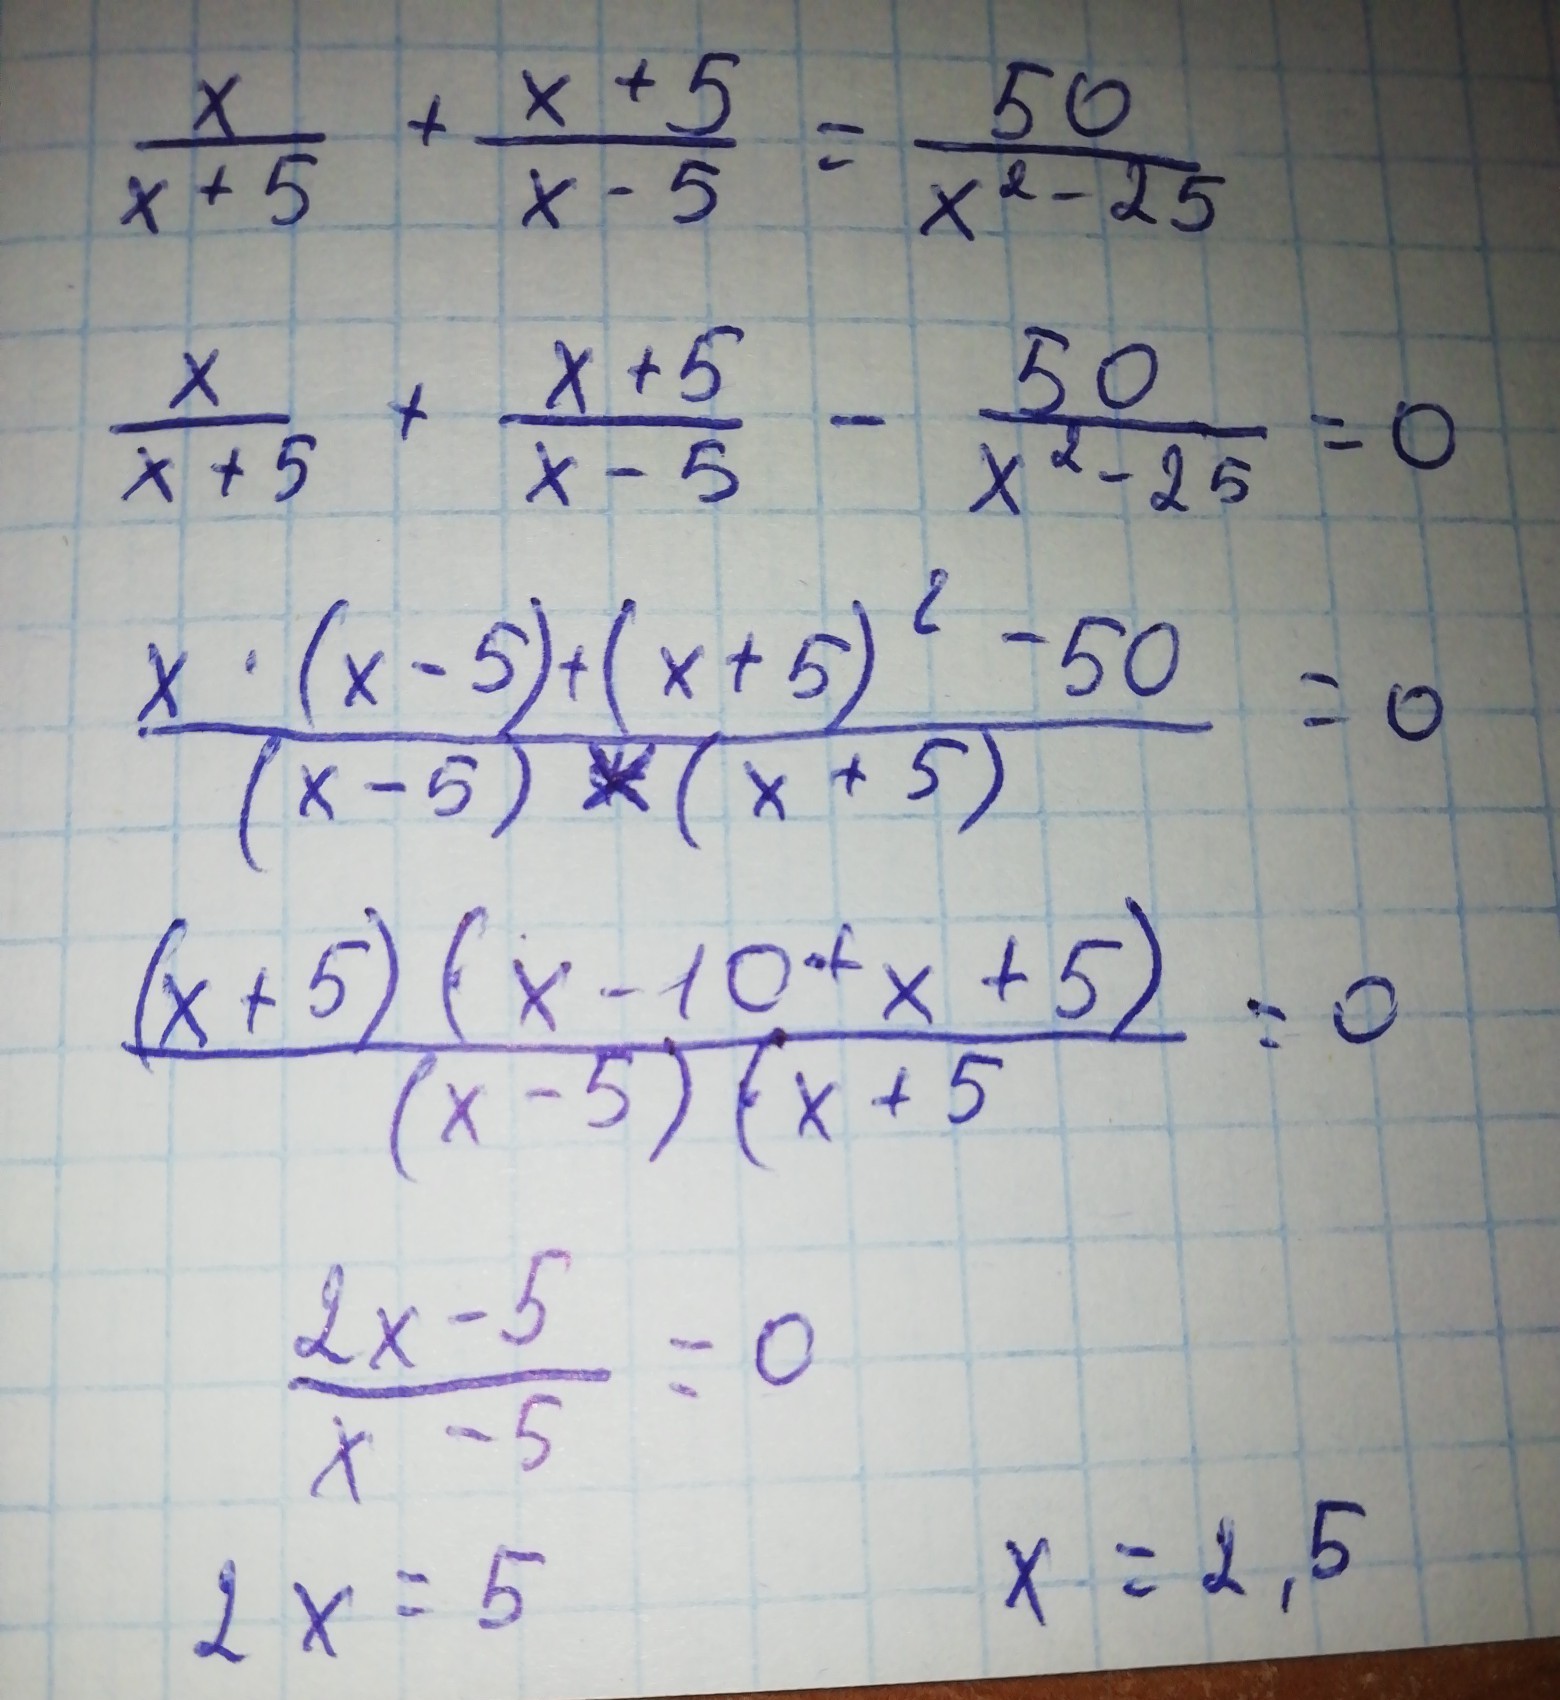 x/(x+5) + (x+5)/(x-5) = 50/(x²-25)
x/(x+5) + (x+5)/(x-5) - 50/(x²-25) = 0
(x·(x-5)+(x+5)²-50)/((x-5)(x+5)) = 0
(x+5)(x-10+x+5)/(x-5)(x+5 = 0
(2x-5)/(x-5) = 0
2x = 5 x = 2,5